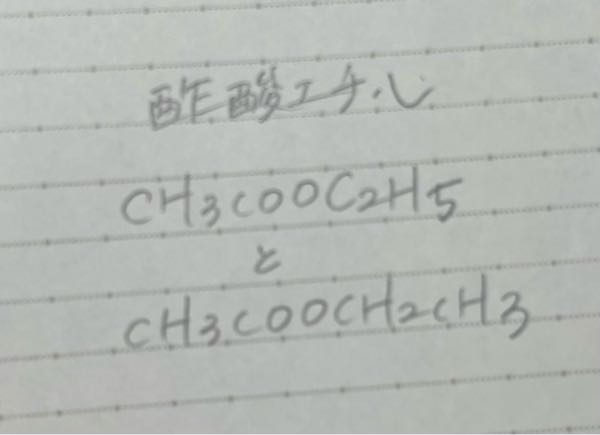 酢酸エチル
CH3COOC2H5
と
CH3COOCH2CH3